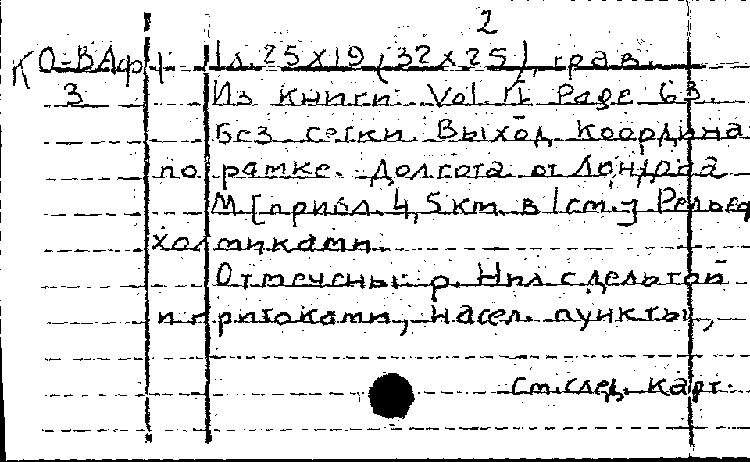 2
К О-ВАф 1 л. 25 х 19 (32 х 25), грав.
3 Из книги: Vol. II. Page 63.
Без сетки. Выход. координа
по рамке. Долгота от Лондона
М [прибл. 4,5 км. в 1 см.] Рельеф
холмиками.
Отмечены: р. Нил с дельтой
и притоками, насел. пункты,
См. след. карт.